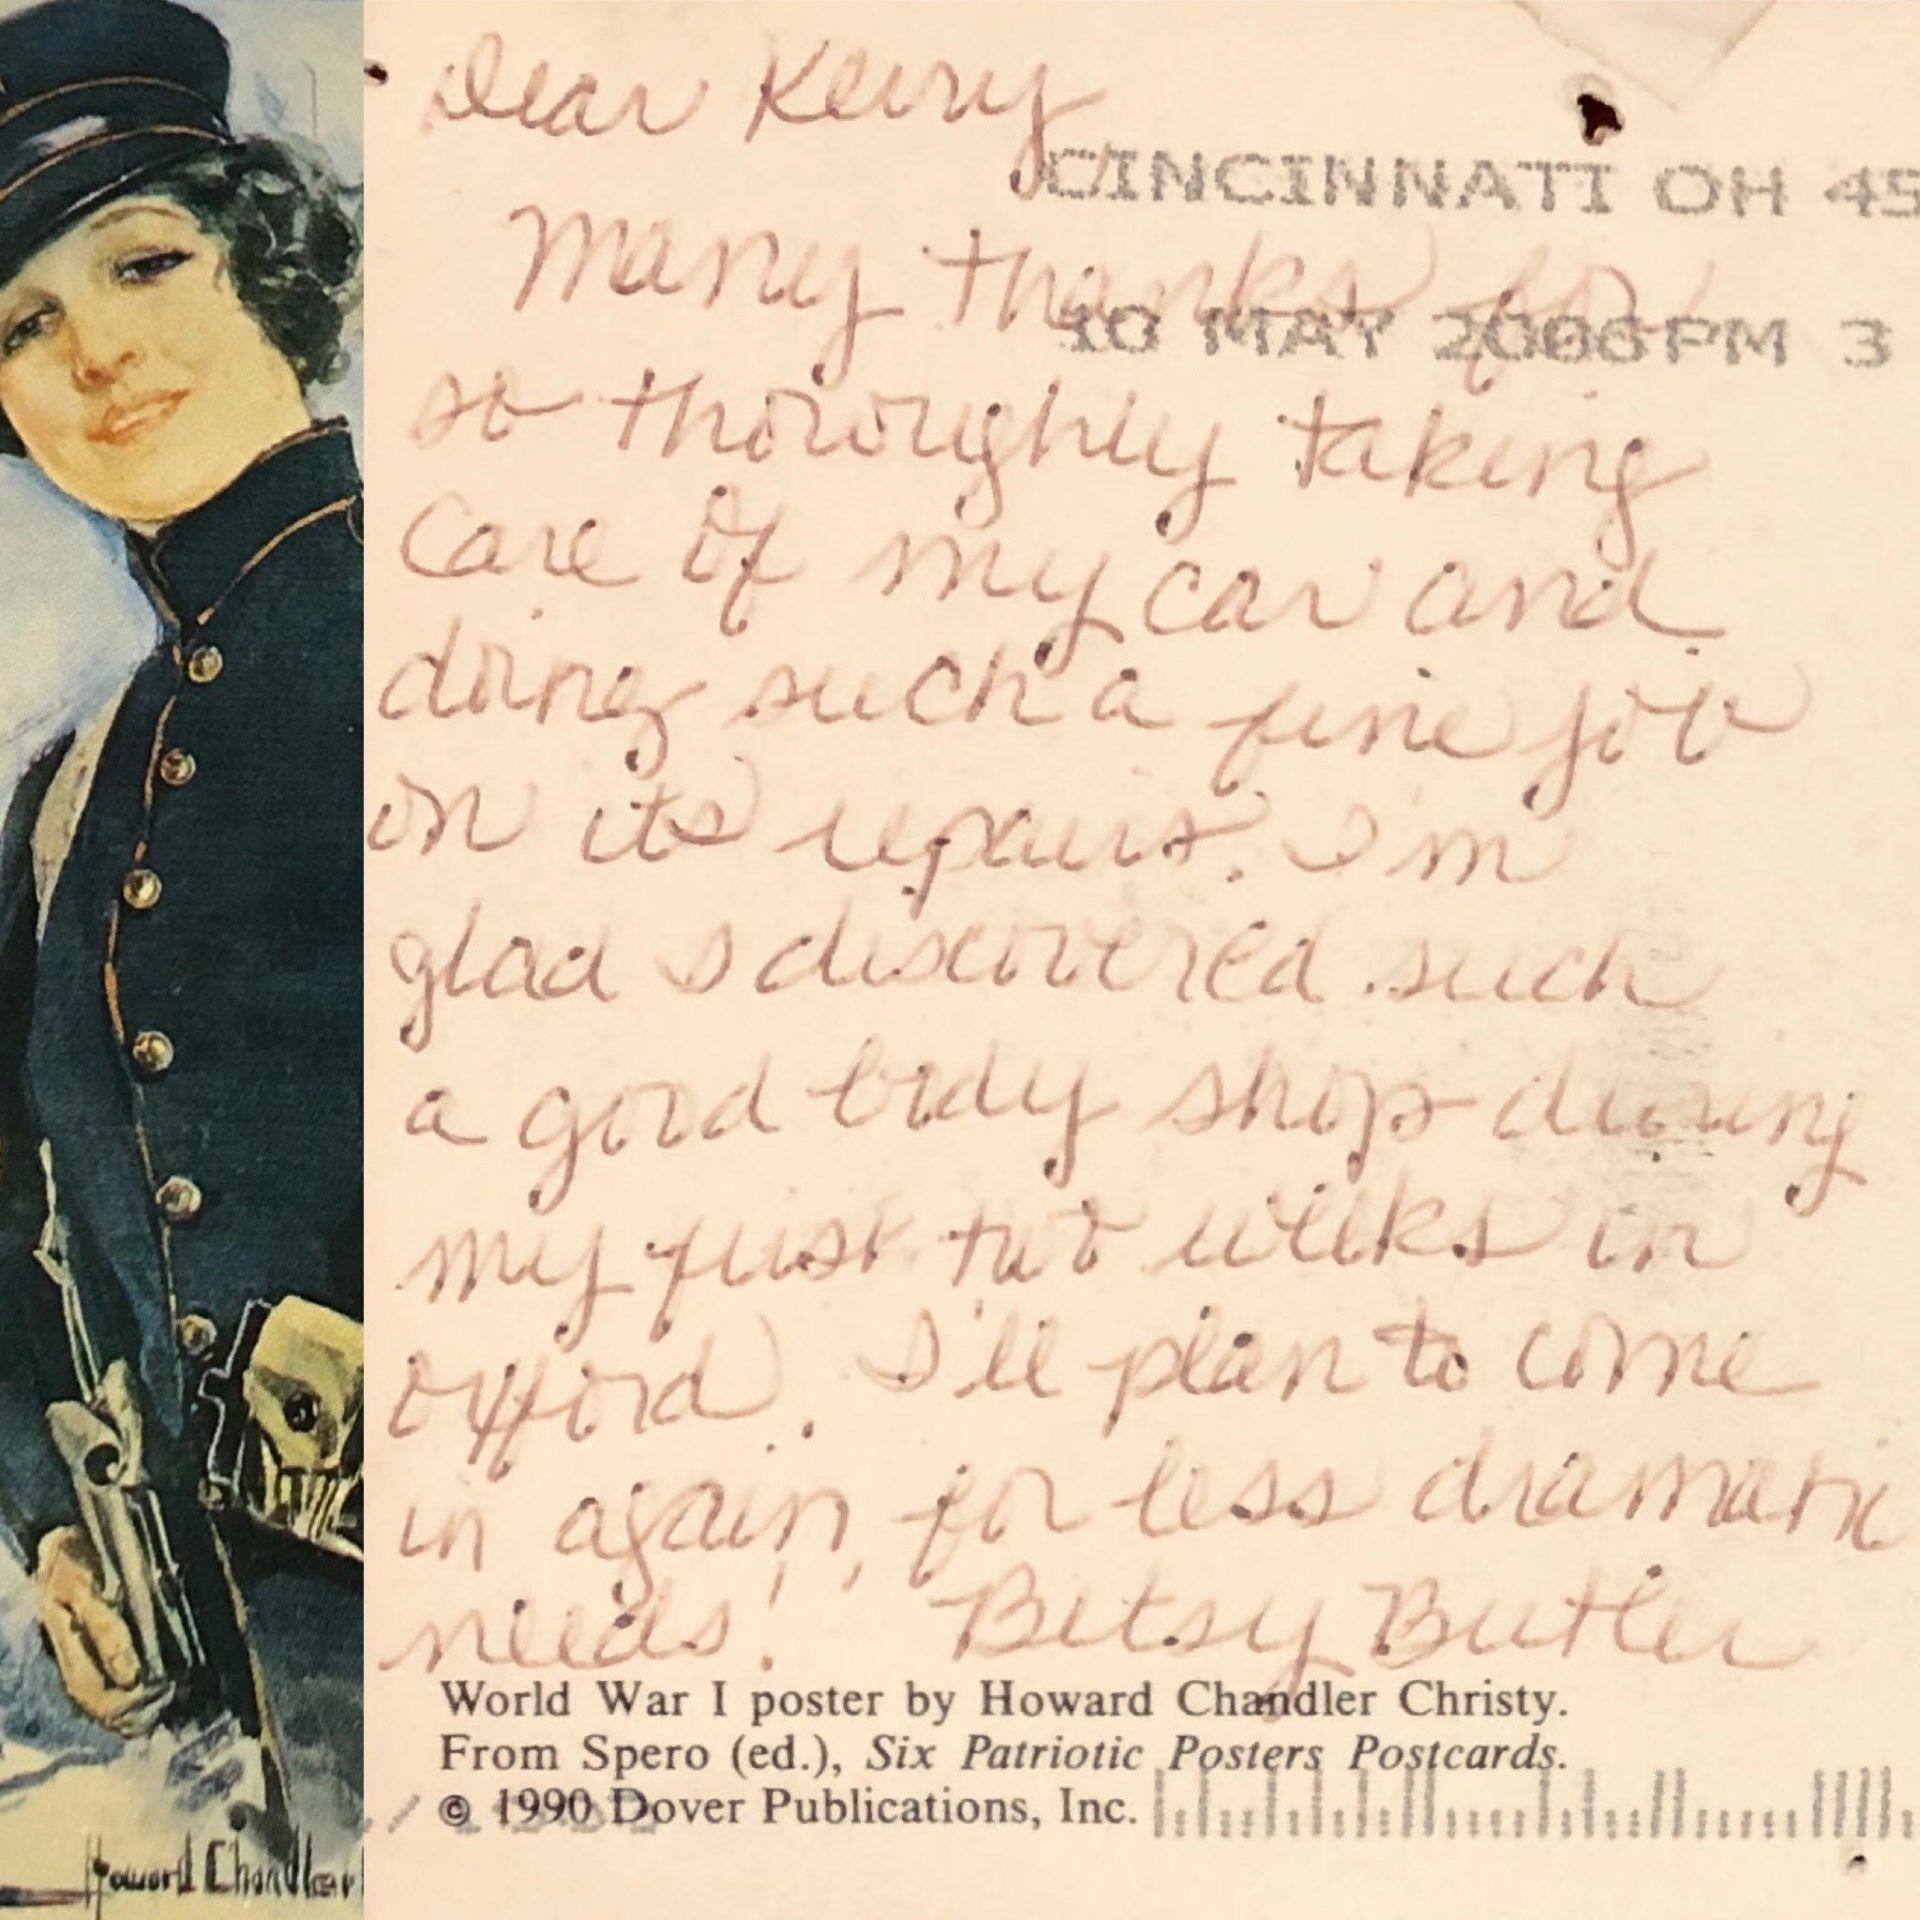 Dear Kerry
CINCINNATI OH 45
Many thanks for
10 MAY 2006 PM 3
so thoroughly taking
care of my car and
doing such a fine job
on its repairs. I'm
glad I discovered such
a good body shop during
my first two weeks in
Oxford. I'll plan to come
in again, for less dramatic
needs! Betsy Butler
World War I poster by Howard Chandler Christy.
From Spero (ed.), Six Patriotic Posters Postcards.
© 1990 Dover Publications, Inc.
Howard Chandler